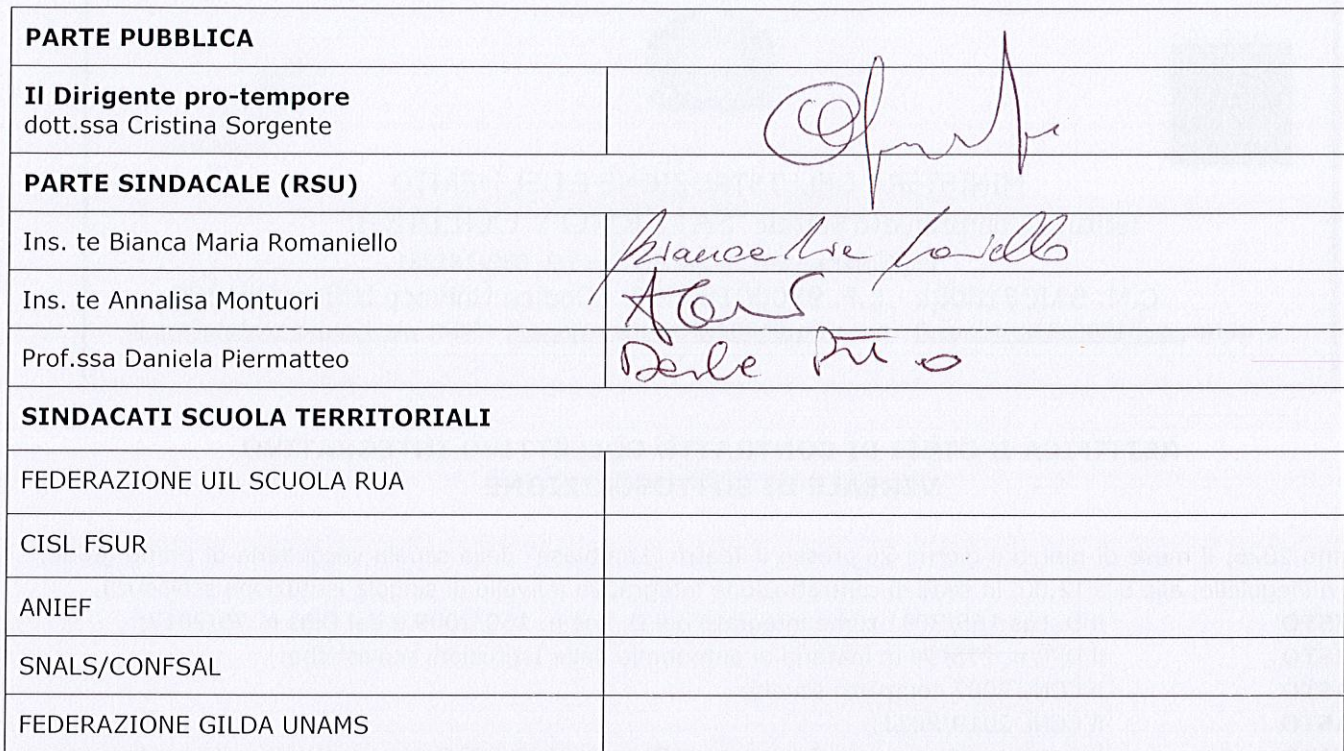 PARTE PUBBLICA
Il Dirigente pro-tempore
dott.ssa Cristina Sorgente
PARTE SINDACALE (RSU)
Ins. te Bianca Maria Romaniello
Ins. te Annalisa Montuori
Prof.ssa Daniela Piermatteo
SINDACATI SCUOLA TERRITORIALI
FEDERAZIONE UIL SCUOLA RUA
CISL FSUR
ANIEF
SNALS/CONFSAL
FEDERAZIONE GILDA UNAMS